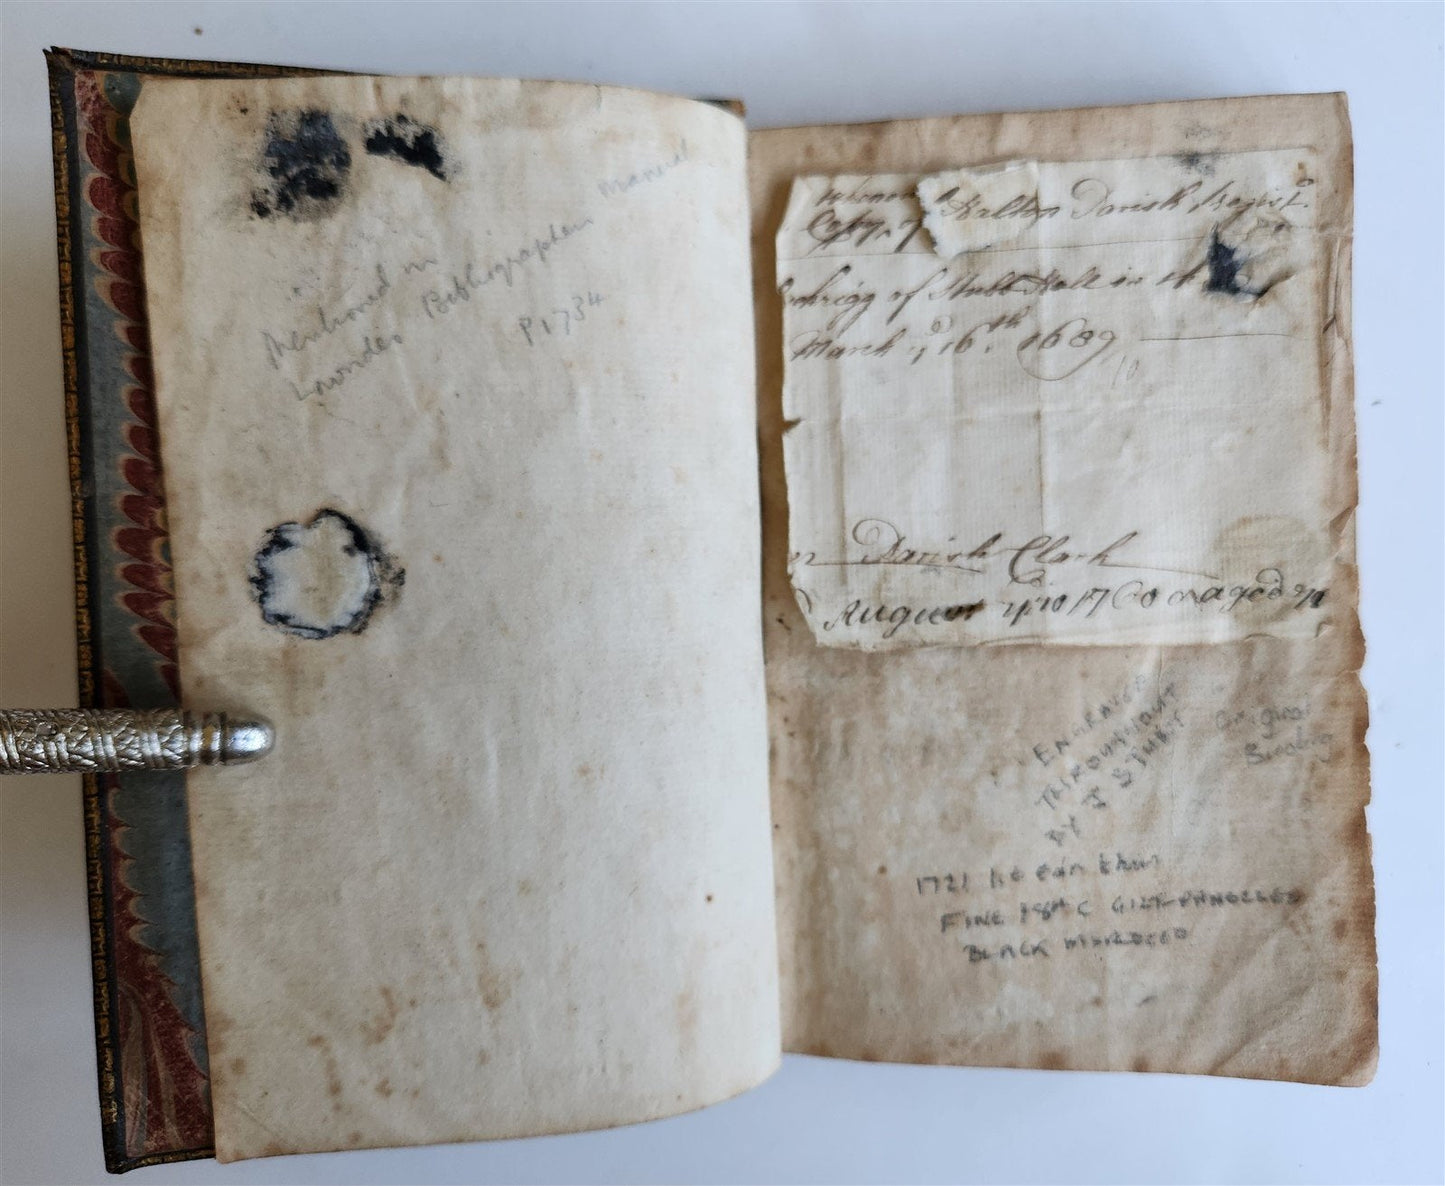 Mentioned in
Lowndes Bibliographer manual
P1734
Copy of Dalton Parish Regist.r
of Stubb Hall in
March ye 16.th 1689
10
Parish Clark
August 1760 aged
ENGRAVED
THROUGHOUT
BY J STURT
Original
Binding
1721 1st edn thus
FINE 18th C GILT PANELLED
BLACK MOROCCO